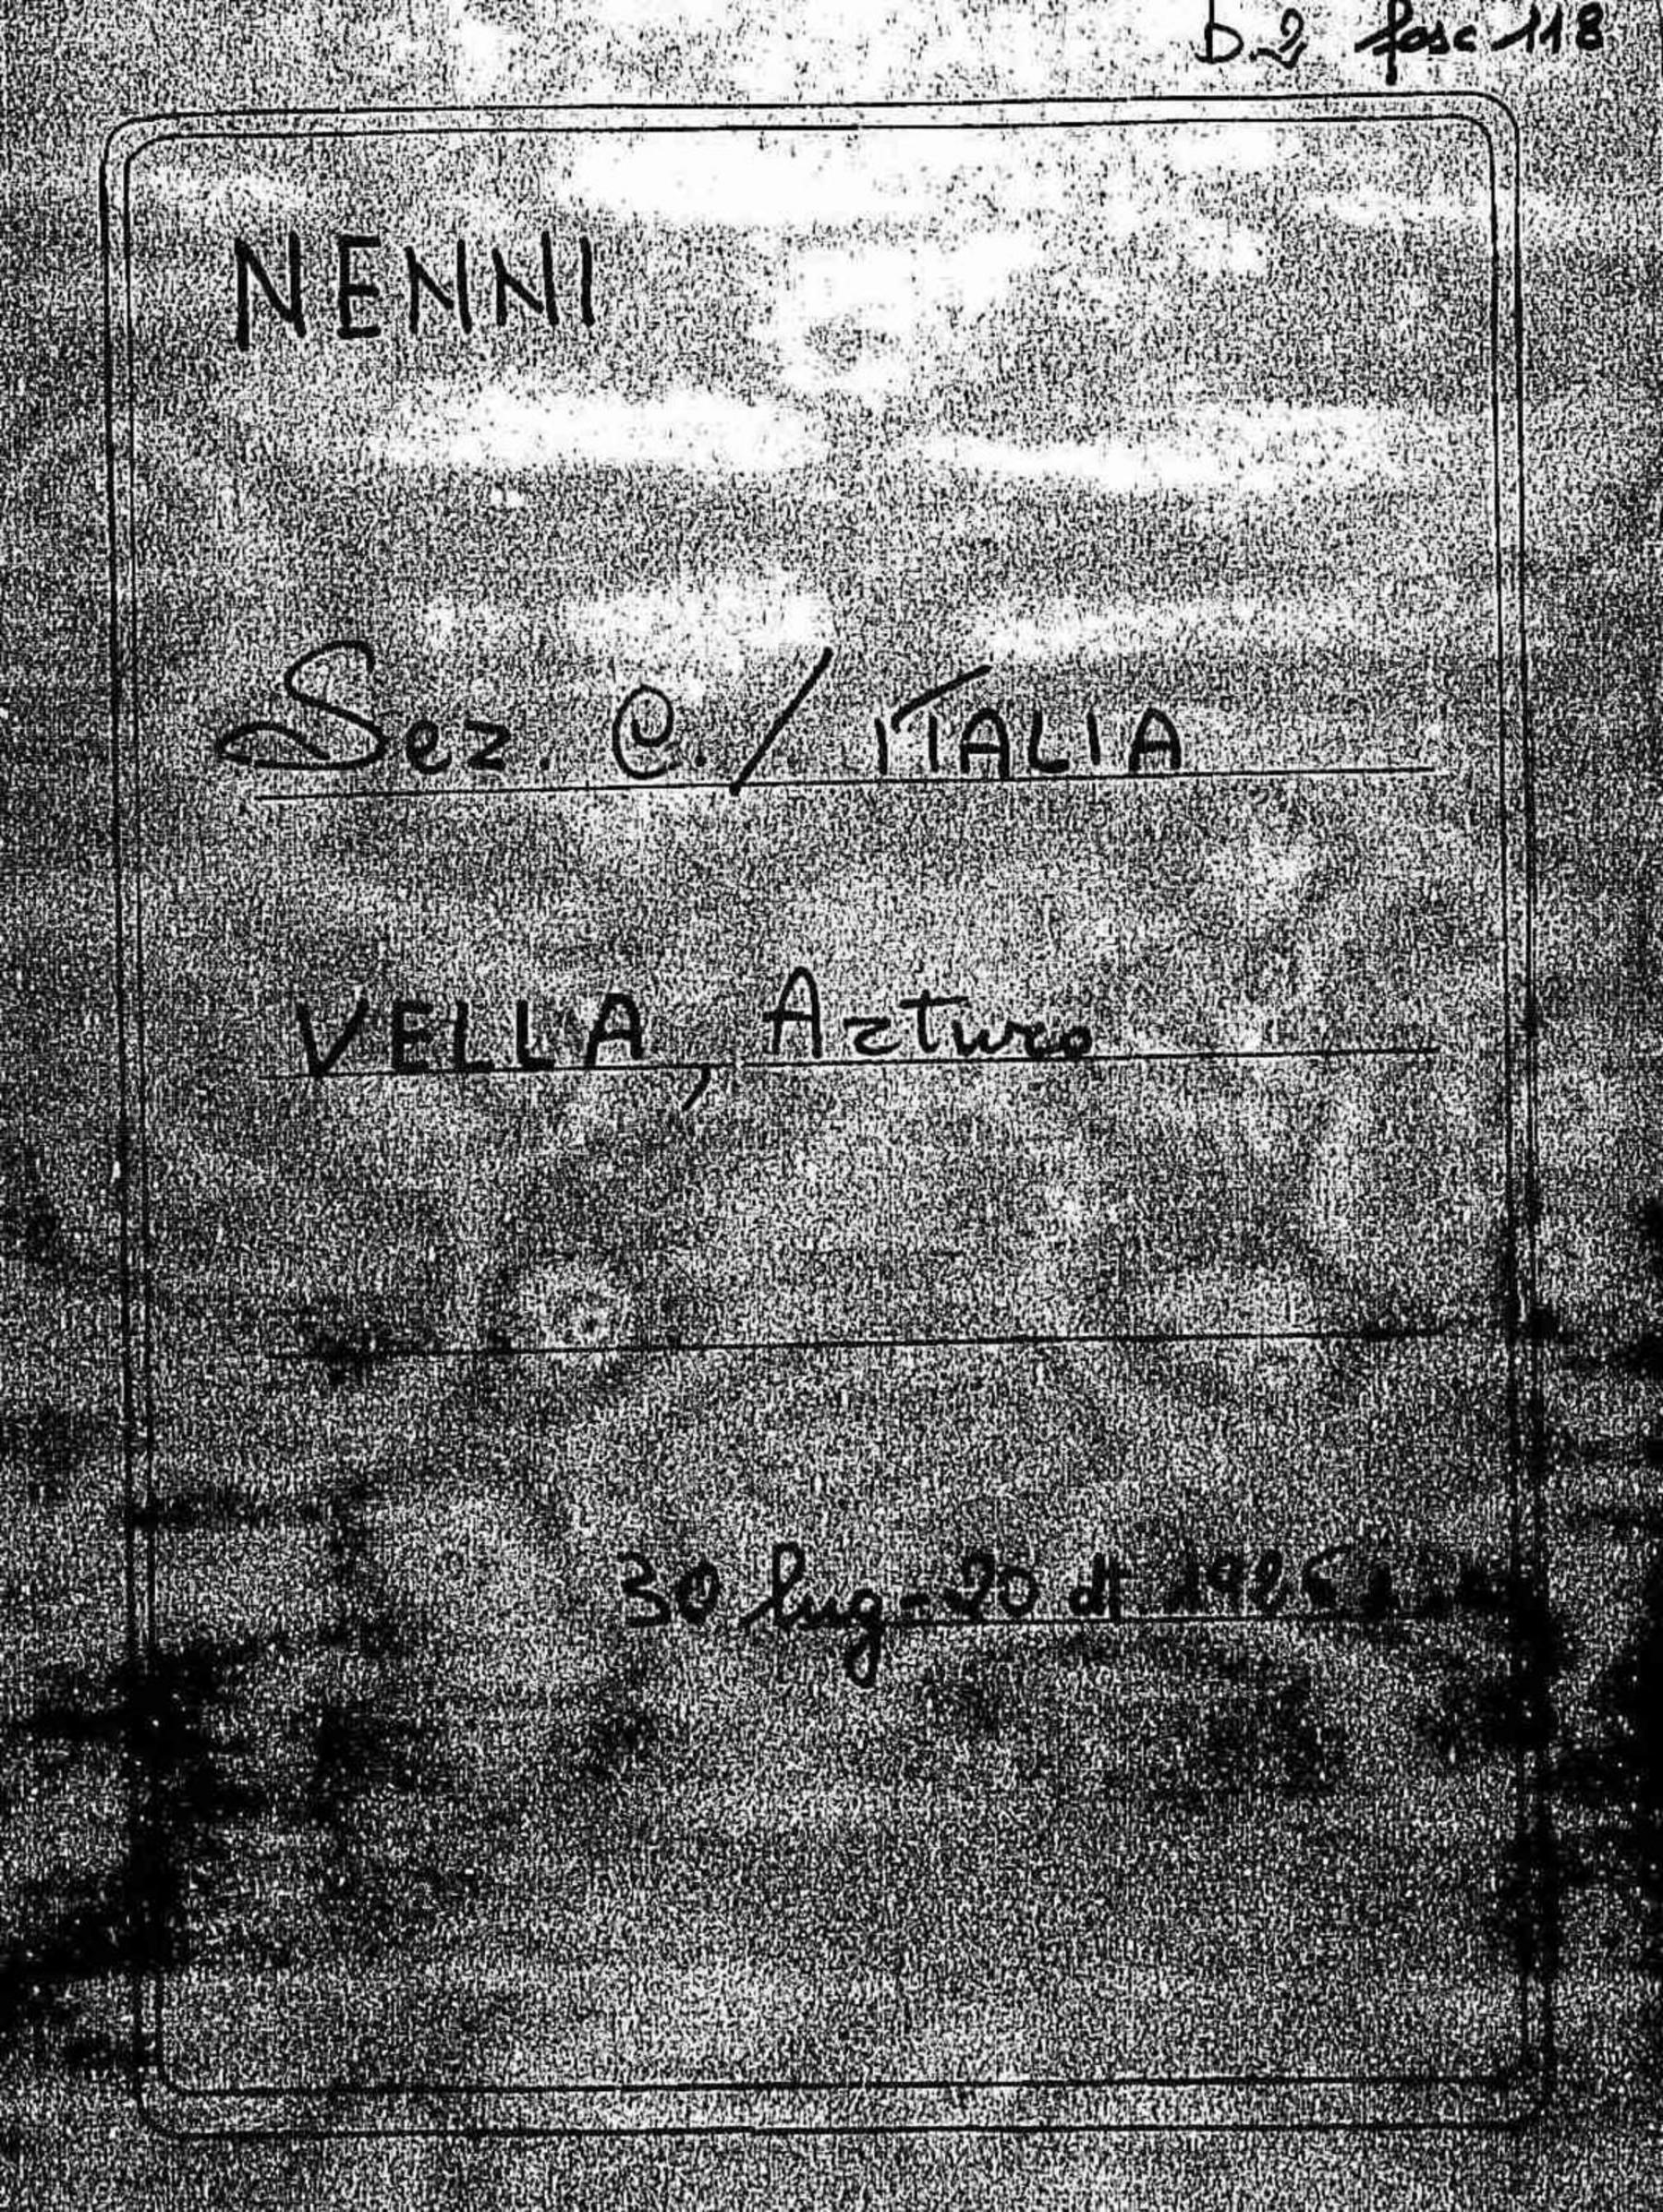 b.2 fasc 118
NENNI
Sez. C./ ITALIA
VELLA, Arturo
30 lug-20 ott. 1926